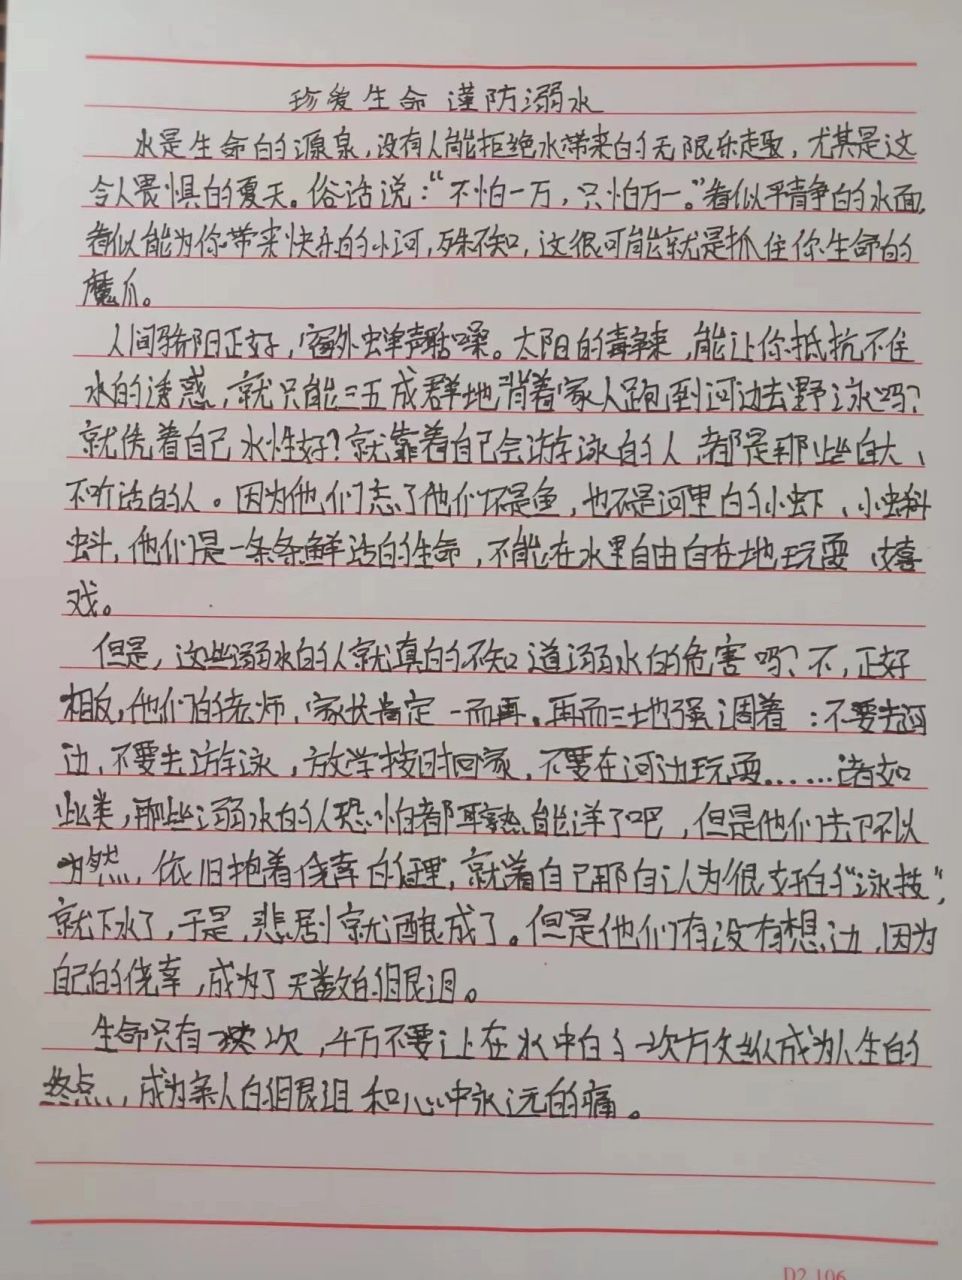 珍爱生命 谨防溺水
水是生命的源泉,没有人能拒绝水带来的无限乐趣,尤其是这
令人畏惧的夏天。俗话说:“不怕一万,只怕万一。”看似平静的水面,
看似能为你带来快乐的小河,殊不知,这很可能就是抓住你生命的
魔爪。
人间骄阳正好,窗外蝉声聒噪。太阳的毒辣,能让你抵抗不住
水的诱惑,就只能三五成群地背着家人跑到河边去野泳吗?
就凭着自己水性好?就靠着自己会游泳的人,都是那些自大、
不听话的人。因为他们忘了他们不是鱼,也不是河里的小虾、小蝌
蚪,他们是一条条鲜活的生命,不能在水里自由自在地玩耍、嬉
戏。
但是,这些溺水的人就真的不知道溺水的危害吗?不,正好
相反,他们的老师,家长肯定一而再,再而三地强调着:不要去河
边,不要去游泳,放学按时回家,不要在河边玩耍......诸如
此类,那些溺水的人恐怕都耳熟能详了吧,但是他们却不以
为然,依旧抱着侥幸的心理,就着自己那自认为很好的“泳技”,
就下水了,于是,悲剧就酿成了。但是他们有没有想过,因为
自己的侥幸,成为了无数的眼泪。
生命只有一次,千万不要让在水中的一次放纵成为人生的
终点,成为亲人的眼泪和心中永远的痛。
D2 106